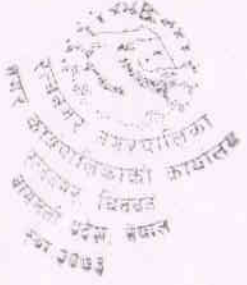 रत्ननगर नगरपालिका
नगर कार्यपालिकाको कार्यालय
रत्ननगर चितवन
बागमती प्रदेश नेपाल